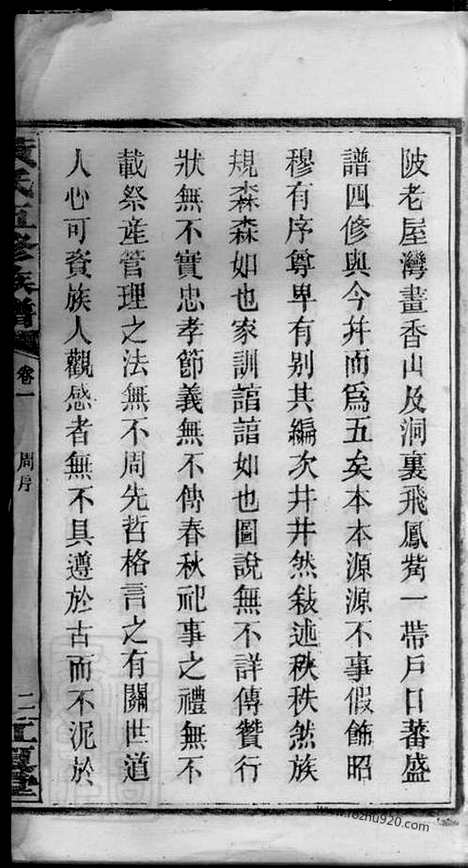 陂老屋灣畫香山及洞裏飛鳳觜一帶戶口蕃盛
譜四修與今幷而爲五矣本本源源不事假飾昭
穆有序尊卑有别其編次井井然敍述秩秩然族
規森森如也家訓誩誩如也圖說無不詳傳贊行
狀無不實忠孝節義無不傳春秋祀事之禮無不
載祭産管理之法無不周先哲格言之有關世道
人心可資族人觀感者無不具遵於古而不泥於
黃氏五修族譜
卷一
周序
二
江夏堂
www.fozhu920.com